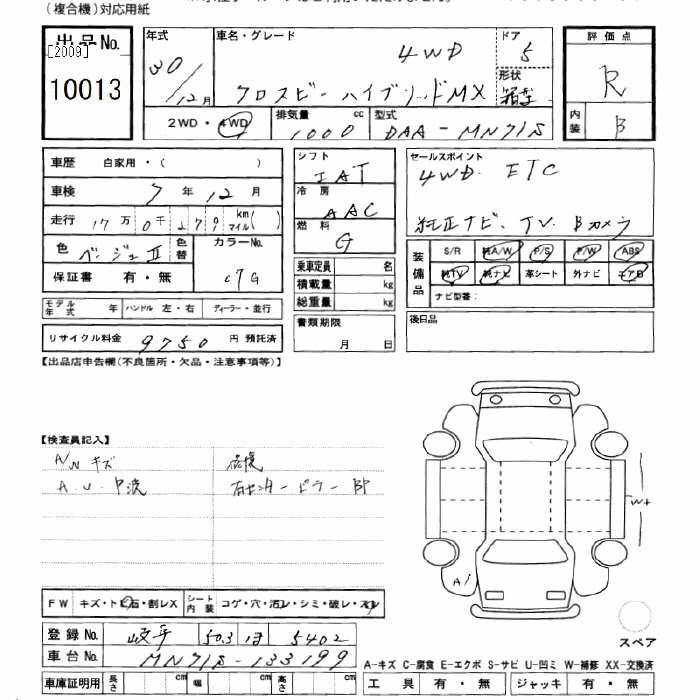 (複合機)対応用紙
出品No.
[2009]
10013
年式 30/12月
車名・グレード 4WD
クロスビー ハイブリッドMX
ドア 5
形状 箱型
2WD・4WD
排気量 1000 cc
型式 DAA-MN71S
評価点 R
内装 B
車歴 自家用・( )
車検 7年12月
走行 17万0千279 km マイル( )
色 ベージュⅡ 色替
カラーNo. C7G
保証書 有・無
モデル年式 年 ハンドル 左・右 ディーラー・並行
リサイクル料金 9750 円 預託済
シフト IAT
冷房 AAC
燃料 G
乗車定員 名
積載量 kg
総重量 kg
書類期限 月 日
セールスポイント
4WD. ETC
純正ナビ、TV、Bカメラ
装備品 S/R 純A/W P/S P/W ABS
純TV 純ナビ 革シート 外ナビ エアB
ナビ型番:
後日品
【出品店申告欄(不良箇所・欠品・注意事項等)】
【検査員記入】
A/W キズ
右センターピラーBP
W+
A1
FW キズ・トビ石・割レX シート内装 コゲ・穴・汚レ・シミ・破レ・スレ
登録No. 岐阜 503 ほ 5402
車台No. MN71S-133199
スペア
A-キズ C-腐食 E-エクボ S-サビ U-凹ミ W-補修 XX-交換済
車庫証明用 長さ cm 幅 cm 高さ cm
工具 有・無 ジャッキ 有・無